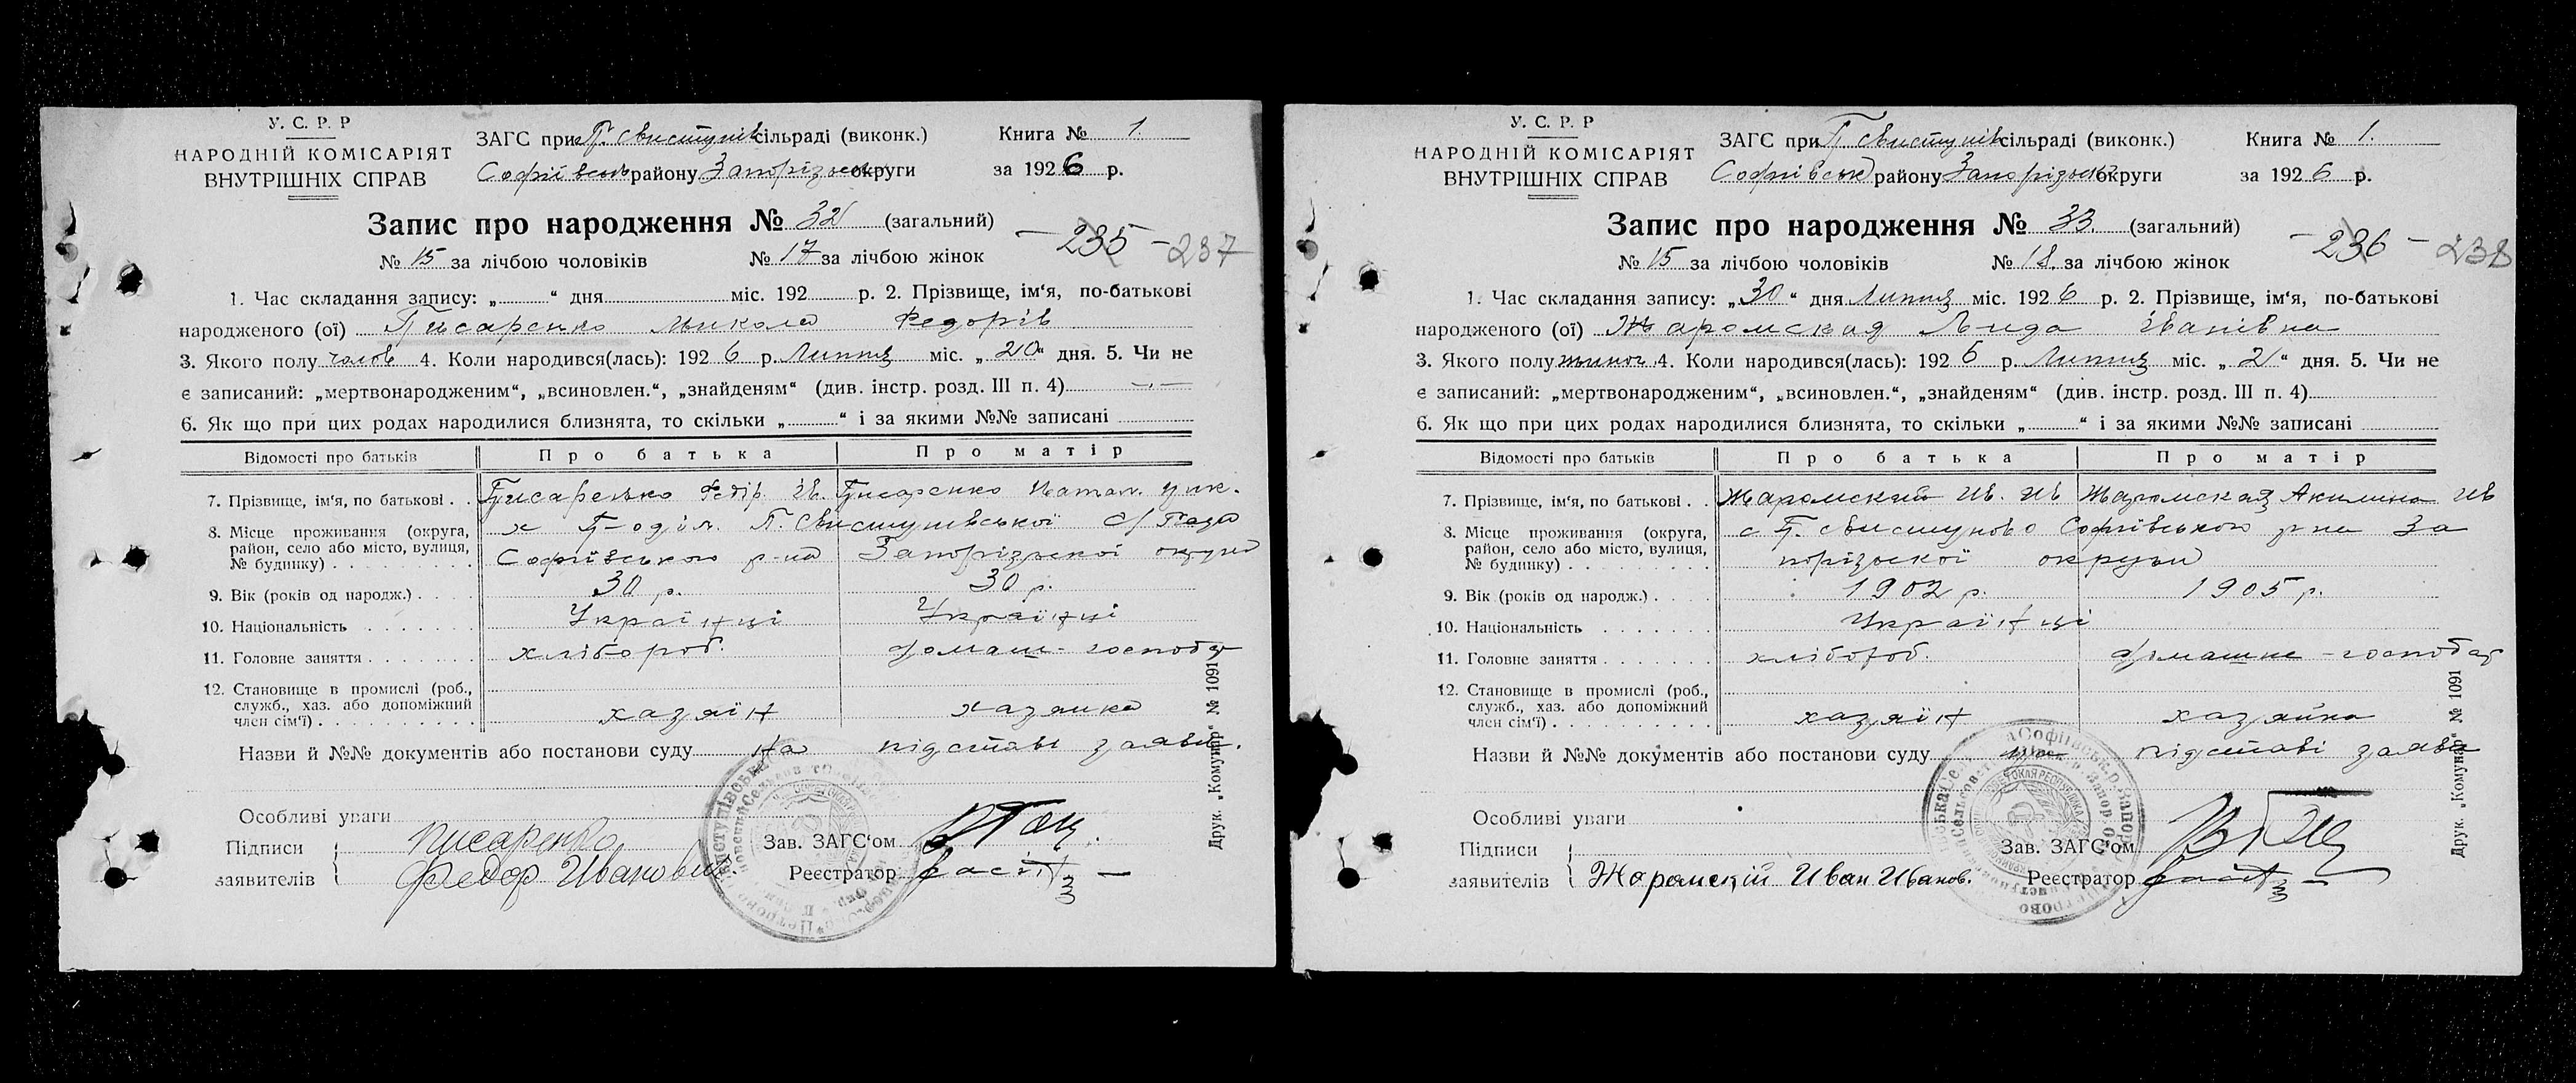 У. С. Р. Р
НАРОДНІЙ КОМІСАРІЯТ
ВНУТРІШНІХ СПРАВ
ЗАГС при П. Свистунів сільраді (виконк.)
Софіївськ району Запорізьк округи
Книга № 1.
за 1926 р.
Запис про народження № 32 (загальний)
№ 15 за лічбою чоловіків № 17 за лічбою жінок
– 235 – 237
1. Час складання запису: „ “ дня міс. 192 р. 2. Прізвище, ім‘я, по-батькові
народженого (ої) Писаренко Микола Федорів
3. Якого полу чолов 4. Коли народився(лась): 1926 р. Липня міс. „20“ дня. 5. Чи не
є записаний: „мертвонародженим“, „всиновлен.“, „знайденям“ (див. інстр. розд. III п. 4)
6. Як що при цих родах народилися близнята, то скільки „ “ і за якими №№ записані
Відомості про батьків Про батька Про матір
7. Прізвище, ім‘я, по батькові . . Писаренко Федір Ів. Писаренко Натал.
8. Місце проживання (округа, район, село або місто, вулиця, № будинку) х П-оділ. П. Свистунівської с/Ради
Софіївського р-на Запорізької округи
9. Вік (років од народж.) 30 р. 30 р.
10. Національність Українці Українці
11. Головне заняття хлібороб. домаш- господар
12. Становище в промислі (роб., служб., хаз. або допоміжний член сім‘ї) хазяїн хазяйка
Назви й №№ документів або постанови суду на підставі заяви.
Особливі уваги
Підписи заявителів Писаренко
Федор Иванович.
Зав. ЗАГС‘ом
Реєстратор
Друк. „Комунар“ № 1091
У. С. Р. Р
НАРОДНІЙ КОМІСАРІЯТ
ВНУТРІШНІХ СПРАВ
ЗАГС при П Свистунів сільраді (виконк.)
Софіївськ району Запорізької округи
Книга № 1.
за 1926 р.
Запис про народження № 33. (загальний)
№ 15 за лічбою чоловіків № 18. за лічбою жінок
– 236 – 238
1. Час складання запису: „30“ дня Липня міс. 1926 р. 2. Прізвище, ім‘я, по-батькові
народженого (ої) Жаромская Лида Іванівна
3. Якого полу жіноч 4. Коли народився(лась): 1926 р. Липня міс. „21“ дня. 5. Чи не
є записаний: „мертвонародженим“, „всиновлен.“, „знайденям“ (див. інстр. розд. III п. 4)
6. Як що при цих родах народилися близнята, то скільки „ “ і за якими №№ записані
Відомості про батьків Про батька Про матір
7. Прізвище, ім‘я, по батькові . . Жаромский Ив. Ив Жаромская Акилина Ив
8. Місце проживання (округа, район, село або місто, вулиця, № будинку) с П. Свистуново Софіївського р на За
порізької округи
9. Вік (років од народж.) 1902 р. 1905 р.
10. Національність Українці
11. Головне заняття хлібороб. домашне - господар
12. Становище в промислі (роб., служб., хаз. або допоміжний член сім‘ї) хазяїн хазяйка
Назви й №№ документів або постанови суду на підставі заяви
Особливі уваги
Підписи заявителів Жоромский Иван Иванов.
Зав. ЗАГС‘ом
Реєстратор
Друк. „Комунар“ № 1091